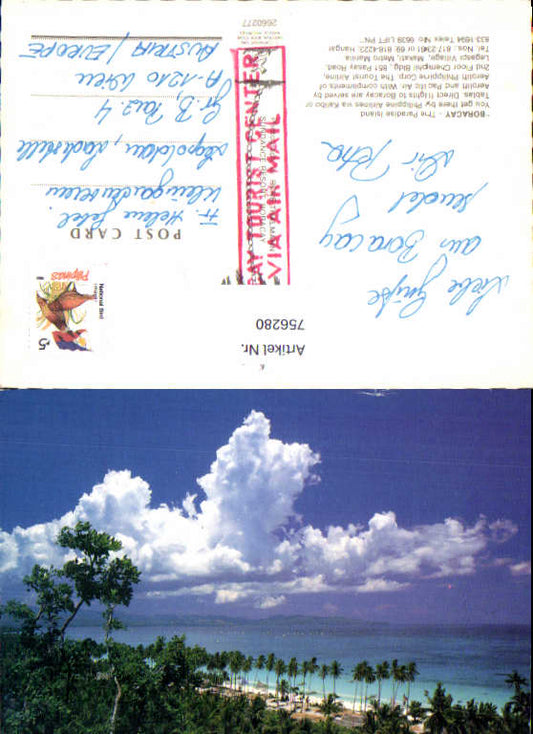 "BORACAY - The Paradise Island
You get there by Philippine Airlines via Kalibo or
Tablas Direct flights to Boracay are served by
Aerolift and Pacific Air With compliments of
Aerolift Philippine Corp The Tourist Airline,
2nd Floor Chemphil Bldg., 851 Pasay Road,
Legaspi Village, Makati, Metro Manila
Tel. Nos. 817.2361 or 69 818-4223, Hangar
833-1694 Telex No. 6639 LIFT PN"
Liebe Grüße
aus Boracay
sendet
AY TOURIST CENTER
VIA AIR MAIL
2660277
POST CARD
Fr. Helene
Kleingartenverein
A-1210 Wien
AUSTRIA / EUROPE
Pilipinas
National Bird
5
Artikel Nr.
756280